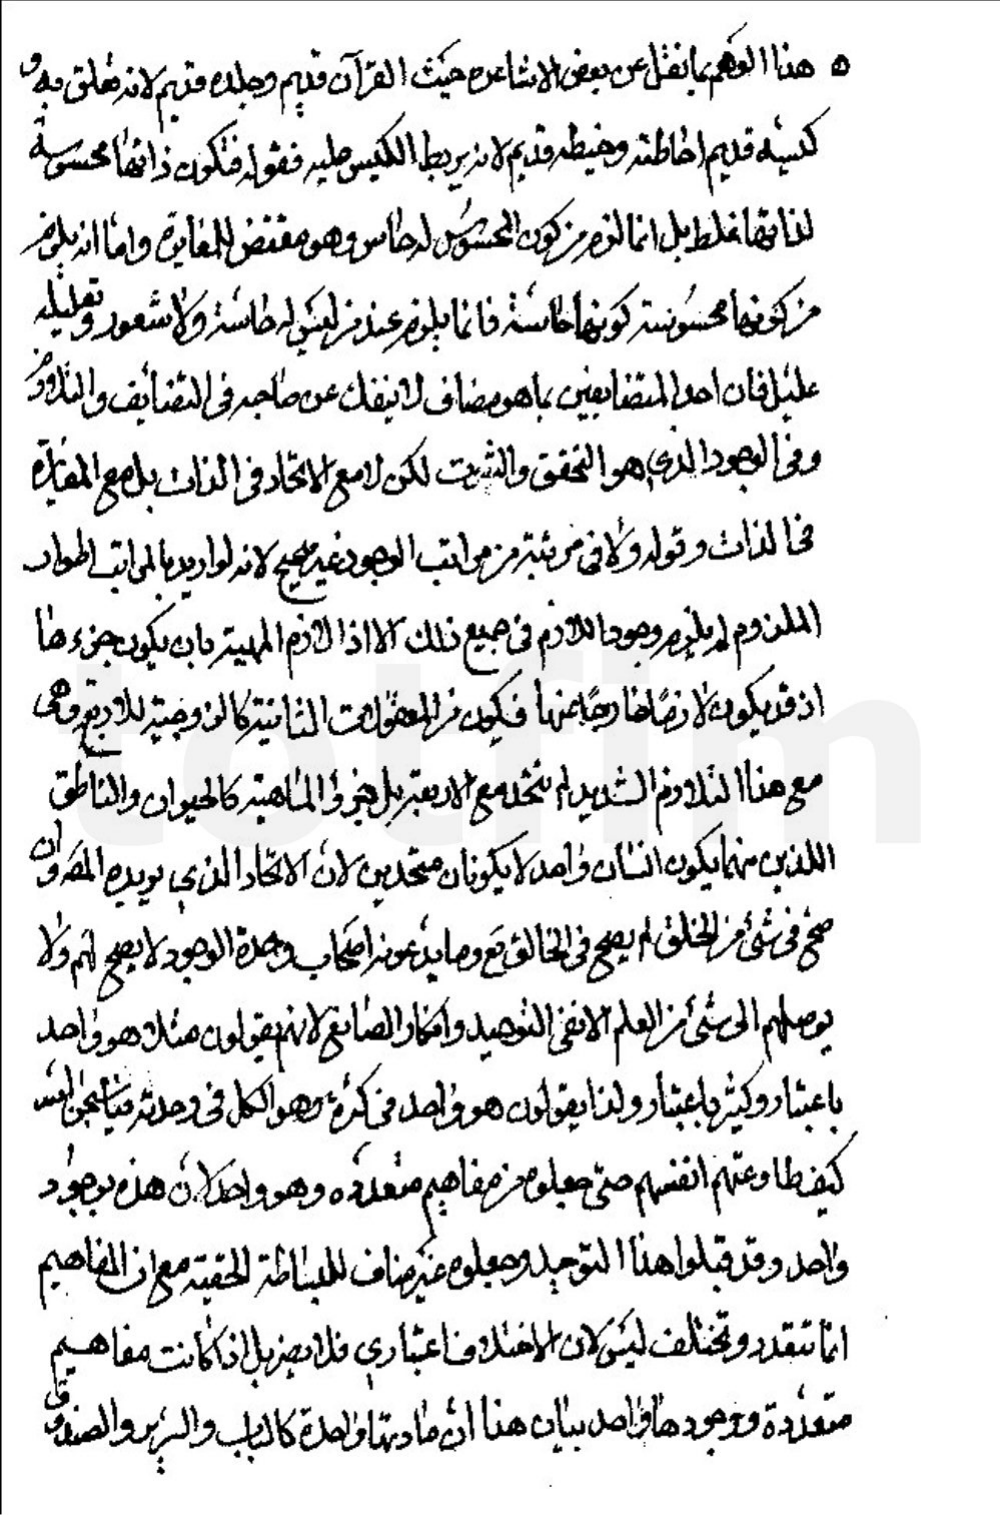 ه هذا الوهم بما نقل عن بعض الاشاعرة حيث القرآن قديم وجلده قديم لانه معلق به و
كيسه قديم احاطته وخيطه قديم لانه يربط الكيس عليه فقوله فتكون ذاتها محسوسة
لذاتها غلط بل انما لزم من كون المحسوس له حاس وهو مقتض للمغايرة واما انه يلزم
من كونها محسوسة كونها حاسة فانما يلزم عند من ليس له حاسة ولا شعور وتعليله
عليل فان احد المتضايفين بما هو مضاف لا ينفك عن صاحبه في التضايف والتلازم
وفي الوجود الذي هو التحقق والثبوت لكن لا مع الاتحاد في الذات بل مع المغايرة
في الذات وقوله ولا في مرتبة من مراتب الوجود غير صحيح لانه لو اريد بالمراتب اطوار
الملزوم لم يلزم وجود اللازم في جميع ذلك الا اذا لازم المهية بان يكون جزءها
اذ قد يكون لازما خارجا عنها فيكون من المعقولات الثانية كالزوجية للاربعة وهي
مع هذا التلازم الشديد لم تتحد مع الاربعة بل جزؤ الماهية كالحيوان والناطق
اللذين منهما يكون انسان واحد لا يكونان متحدين لان الاتحاد الذي يريده المص وان
صح في شئ من الخلق لم يصح في الخالق تع وما يدعونه اصحاب وحدة الوجود لا يصح لهم ولا
يوصلهم الى شئ من العلم الا نفي التوحيد وانكار الصانع لانهم يقولون مثلا هو واحد
باعتبار وكثير باعتبار ولذا يقولون هو واحد في كثرة وهو الكل في وحدته فياسبحن الله
كيف طاوعتهم انفسهم حتى جعلوه من مفاهيم متعددة وهو واحد لان هذه بوجود
واحد وقد قبلوا هذا التوحيد وجعلوه غير مناف للبساطة الحقية مع ان المفاهيم
انما تتعدد وتختلف ليس لان الاختلاف اعتباري فلا يضر بل اذا كانت مفاهيم
متعددة ووجودها واحد بيان هذا ان مادتها واحدة كالباب والسرير والصندوق